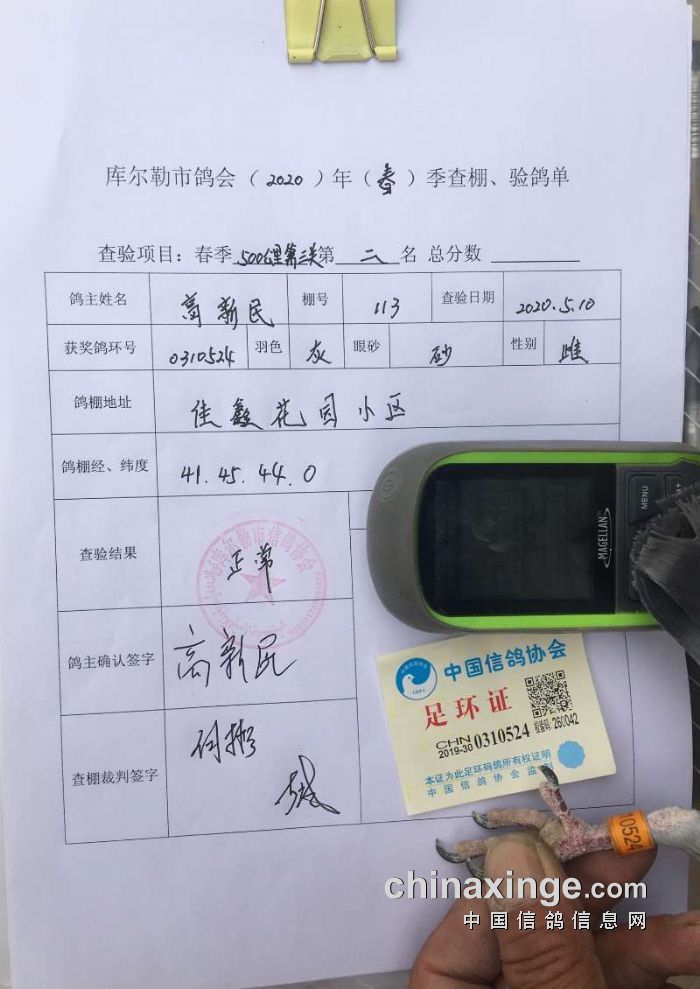 库尔勒市鸽会（2020）年（春）季查棚、验鸽单
查验项目：春季 500公里第三关 第 二 名 总分数
鸽主姓名 高新民 棚号 113 查验日期 2020.5.10
获奖鸽环号 0310524 羽色 灰 眼砂 砂 性别 雌
鸽棚地址 佳鑫花园小区
鸽棚经、纬度 41.45.44.0
查验结果 正常
库尔勒市信鸽协会
鸽主确认签字 高新民
查棚裁判签字
MENU
MAGELLAN
中国信鸽协会
足环证
CHN
2019-30 0310524 校验码 260042
本证为此足环码鸽所有权证明
中国信鸽协会监制
10524
chinaxinge.com
中国信鸽信息网